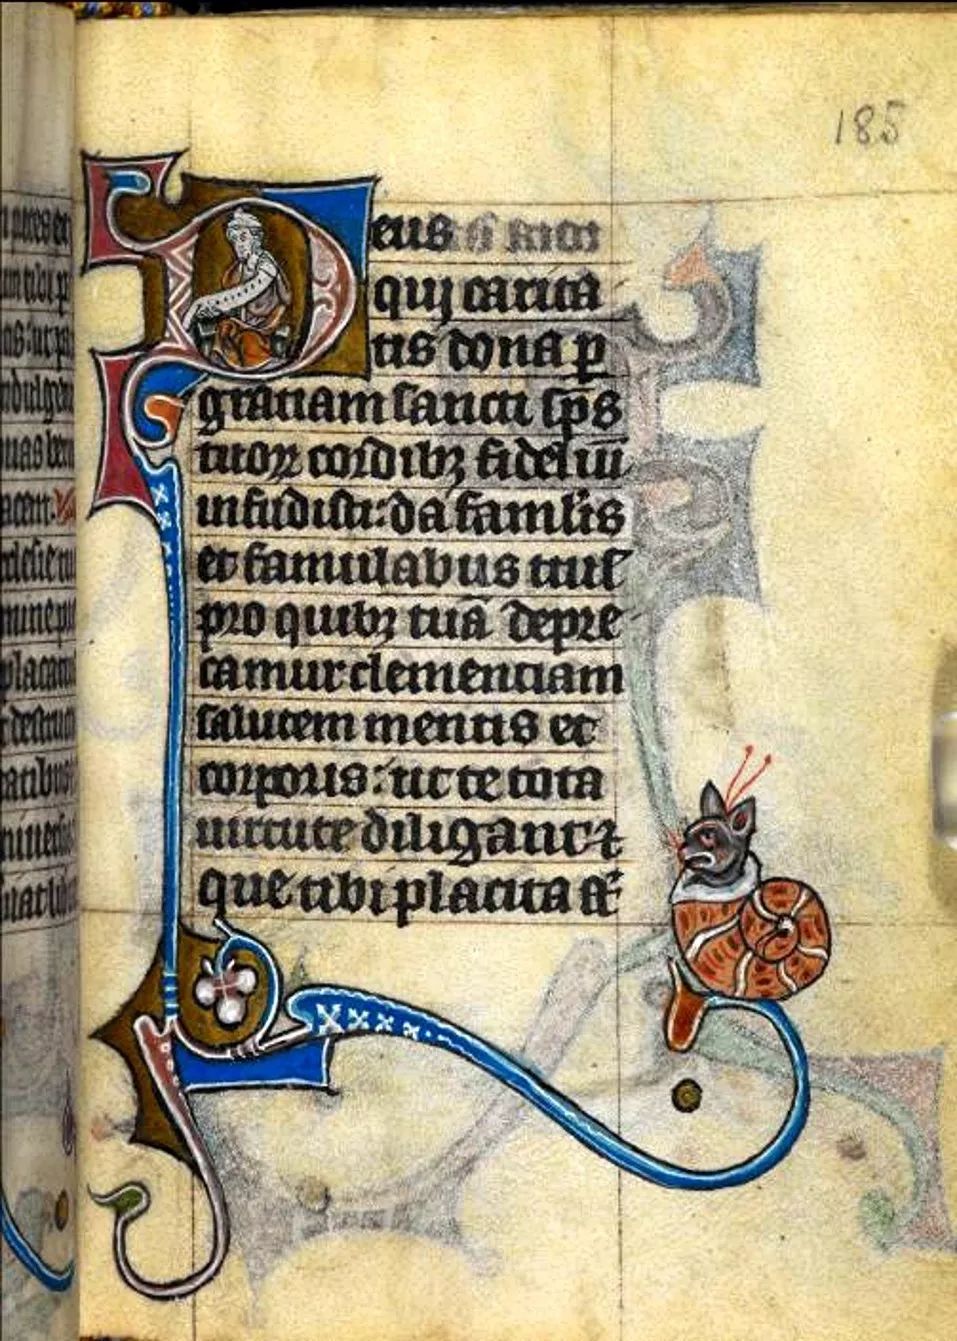 185
Deus
qui carita
tis dona ꝑ
gratiam sancti sp̄s
tuoꝝ cordibꝫ fideliū
infudisti: da famulis
et famulabus tuis
pro quibꝫ tuā depre
camur clementiam
salutem mentis et
corporis: ut te tota
uirtute diligant ⁊
que tibi placita